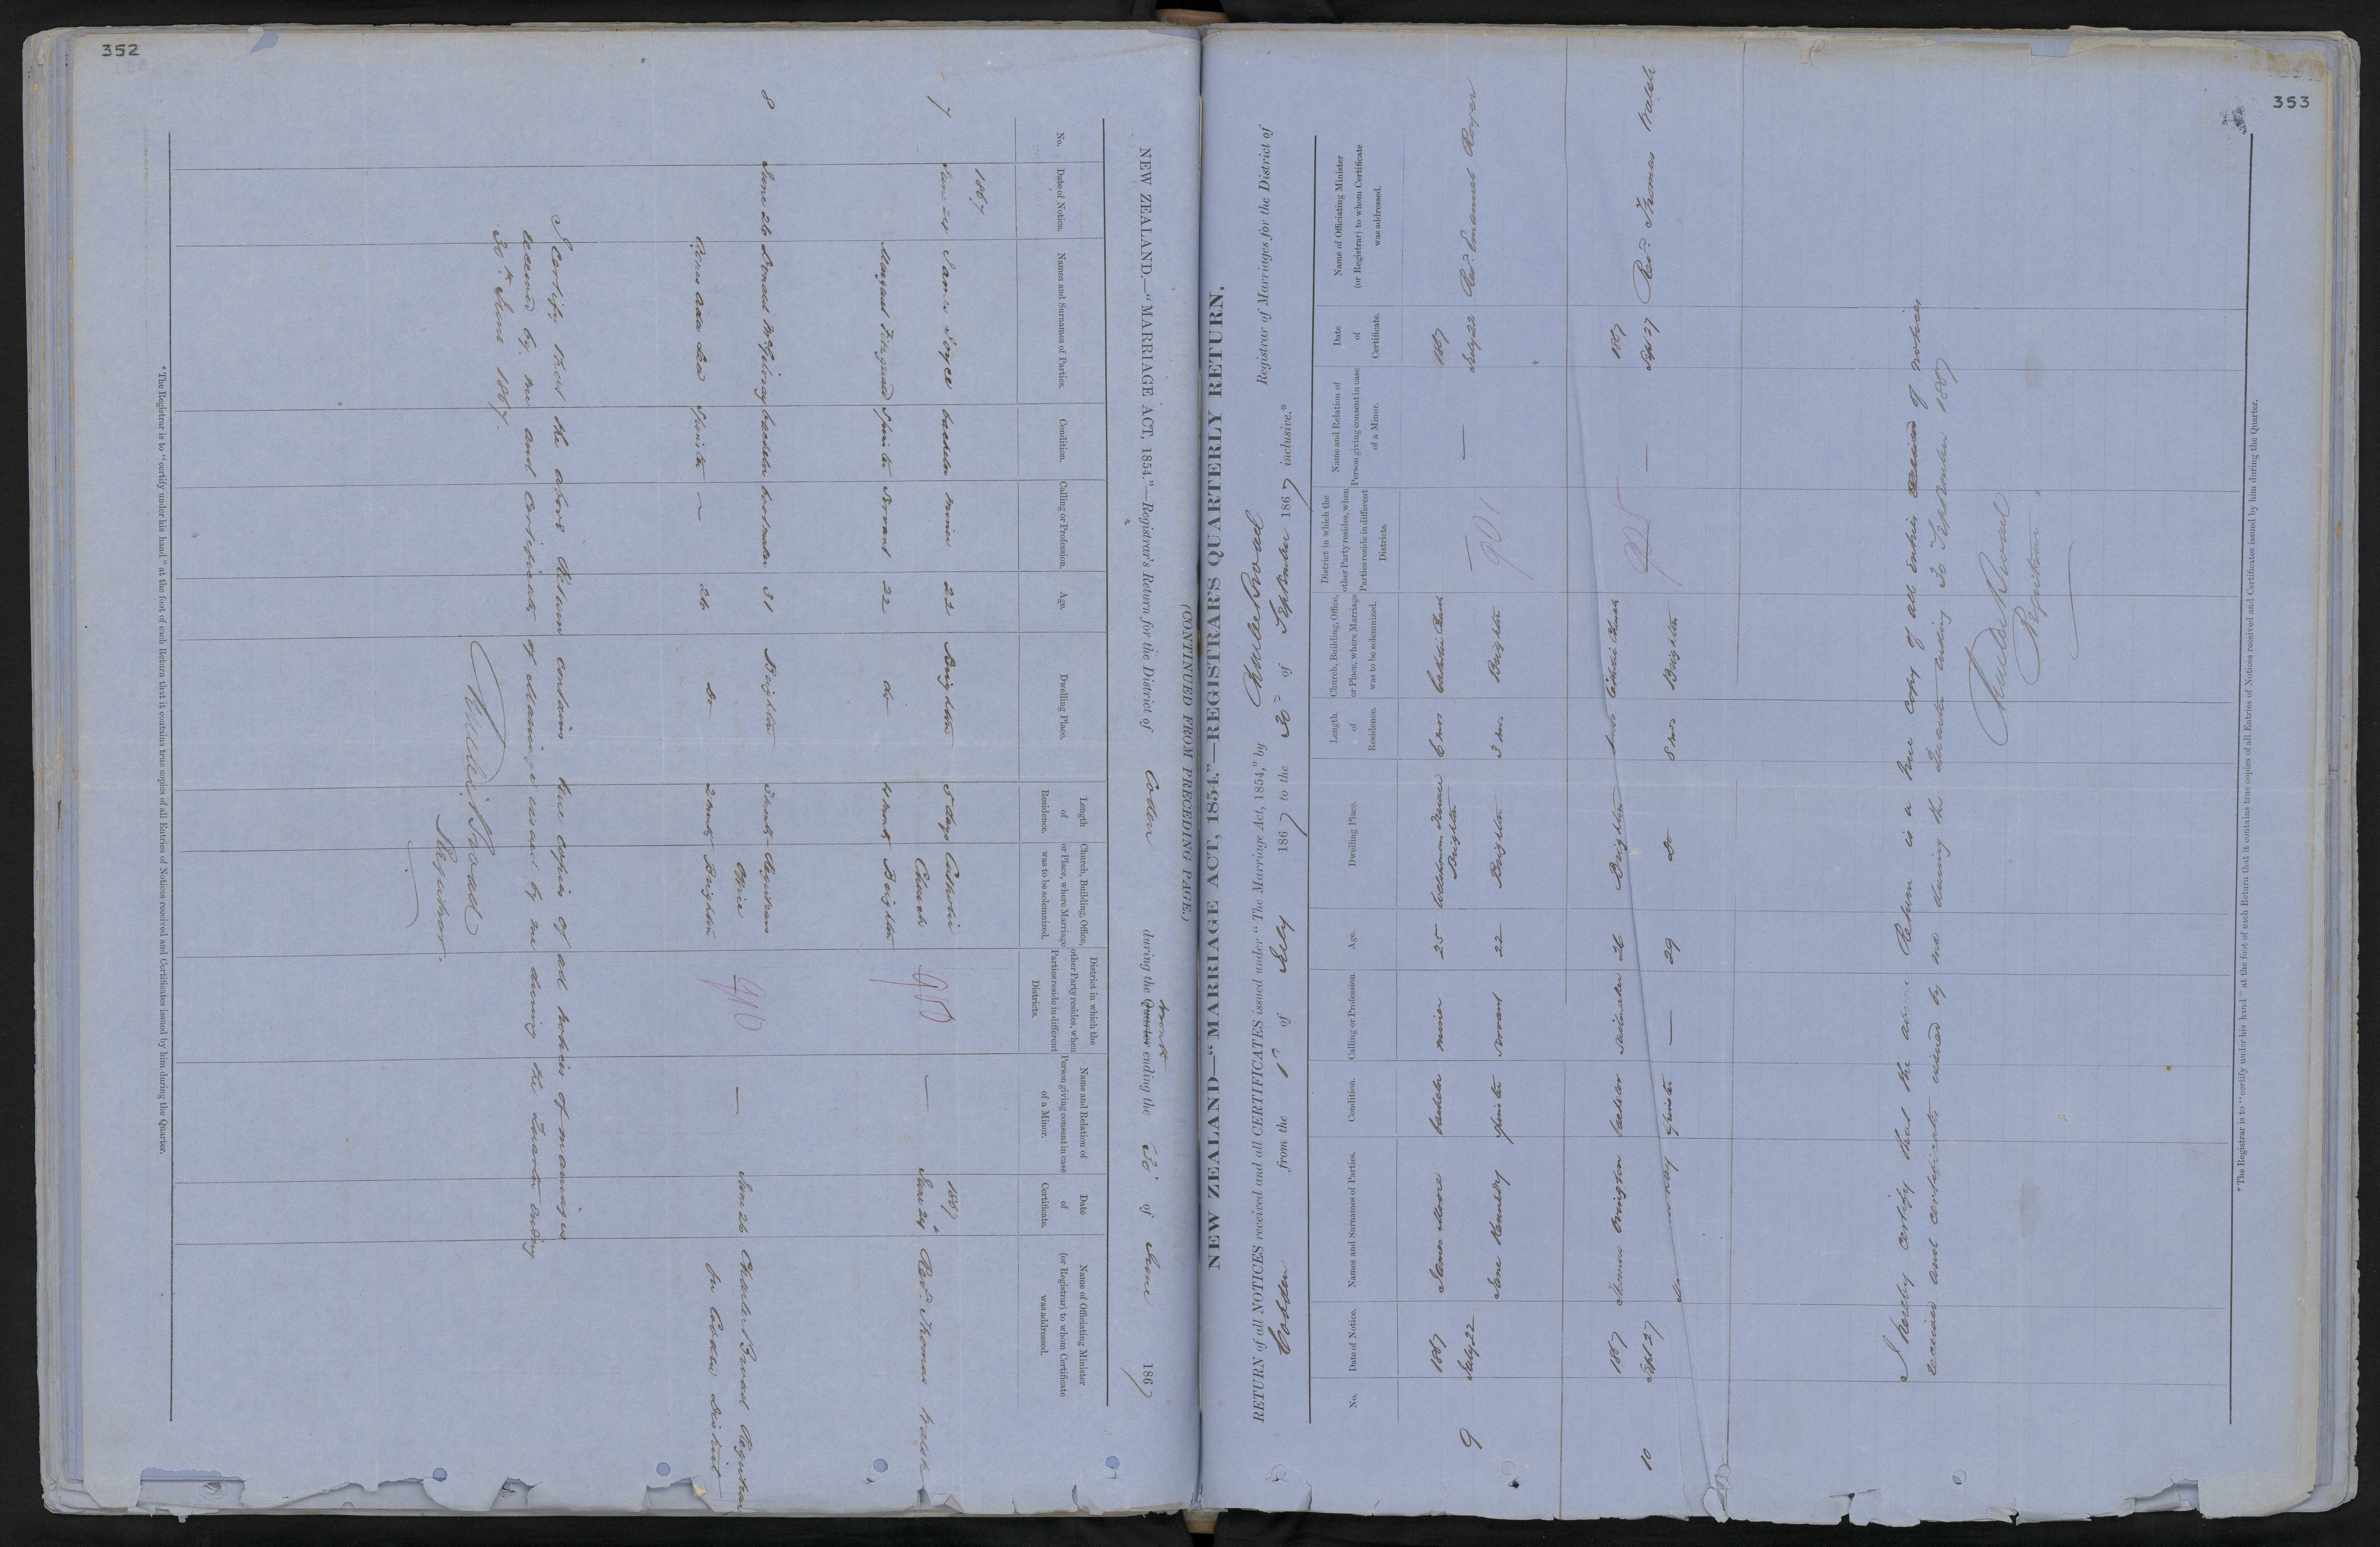 352
(CONTINUED FROM PRECEDING PAGE.)
NEW ZEALAND.—"MARRIAGE ACT, 1854."—Registrar's Return for the District of Cobden during the Quarter ending the 30 of June 1867
No.
Date of Notice.
Names and Surnames of Parties.
Condition.
Calling or Profession.
Age.
Dwelling Place.
Length of Residence.
Church, Building, Office, or Place, where Marriage was to be solemnized.
District in which the other Party resides, when Parties reside in different Districts.
Name and Relation of Person giving consent in case of a Minor.
Date of Certificate.
Name of Officiating Minister (or Registrar) to whom Certificate was addressed.
1867 1867
7 June 24 James Joyce bachelor miner 22 Brighton 5 days Catholic Church 950 — June 24 Revd. Thomas Walsh
Margaret Fitzgerald Spinster Servant 22 do 4 months Brighton
8 June 26 Donald McGilvray bachelor bootmaker 31 Brighton 3 months Registrars Office 940 — June 26 Charles Broad Registrar
Spinster — 26 do 2 months Brighton for Cobden District
I certify that the above Return contains true copies of all notices of marriages
received by me and certificates of Marriage issued by me during the Quarter ending
30th June 1867.
Charles Broad
Registrar.
* The Registrar is to "certify under his hand" at the foot of each Return that it contains true copies of all Entries of Notices received and Certificates issued by him during the Quarter.
353
NEW ZEALAND—"MARRIAGE ACT, 1854."—REGISTRAR'S QUARTERLY RETURN.
RETURN of all NOTICES received and all CERTIFICATES issued under "The Marriage Act, 1854," by Charles Broad Registrar of Marriages for the District of
Cobden from the 1st of July 1867 to the 30 of September 1867 inclusive.*
No.
Date of Notice.
Names and Surnames of Parties.
Condition.
Calling or Profession.
Age.
Dwelling Place.
Length of Residence.
Church, Building, Office, or Place, where Marriage was to be solemnized.
District in which the other Party resides, when Parties reside in different Districts.
Name and Relation of Person giving consent in case of a Minor.
Date of Certificate.
Name of Officiating Minister (or Registrar) to whom Certificate was addressed.
1867 James Moore bachelor miner 25 Terrace Brighton 6 mos Catholic Church — 1867
9 July 22 Jane Kennedy spinster servant 22 Brighton 3 mos Brighton 901 — July 22 Revd. Emanuel Royer
1867 Thomas bachelor 26 Brighton Catholic Church 925 1867
10 Sept 27 spinster — 29 Do 8 mos Brighton — Sept 27 Revd. Thomas Walsh
I hereby certify that the above Return is a true copy of all entries received of notices
received and certificates issued by me during the Quarter ending 30 September 1867
Charles Broad
Registrar
* The Registrar is to "certify under his hand" at the foot of each Return that it contains true copies of all Entries of Notices received and Certificates issued by him during the Quarter.